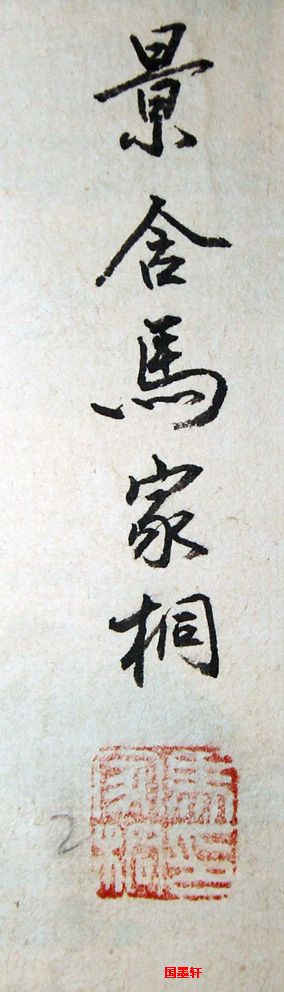 景含馬家桐
2
国墨轩